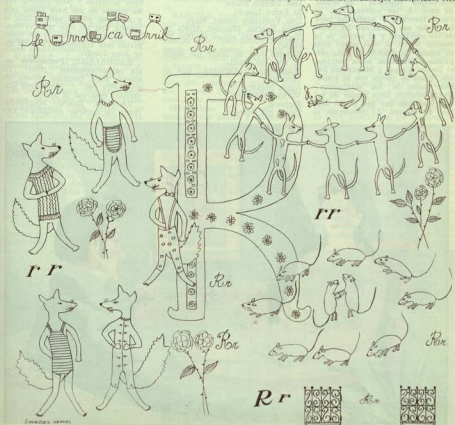 fe rro ca rril
Rr
Rr
Rr
rr
r r
R
Rr
Rr
Rr
R r
Rr